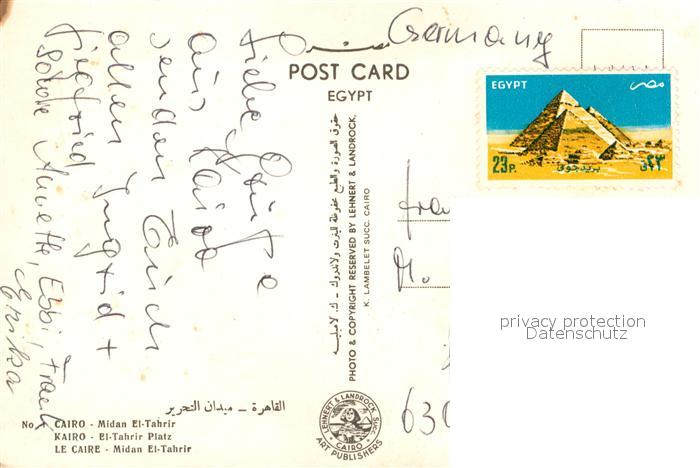 Germany
مصر
POST CARD
EGYPT
EGYPT مصر
23P. بريد جوى ٢٣
Liebe Grüße
aus Kairo
senden Euch
allen Ingrid +
Siegfried
sowie Annette, Ebbi, Frank
Erika
حقوق الصورة والطبع محفوظة للهرت ولاندروك - ك. لامبليه
PHOTO & COPYRIGHT RESERVED BY LEHNERT & LANDROCK,
K. LAMBELET SUCC. CAIRO
Fra
M.
630
privacy protection
Datenschutz
القاهرة – ميدان التحرير
No.
CAIRO - Midan El-Tahrir
KAIRO - El-Tahrir Platz
LE CAIRE - Midan El-Tahrir
LEHNERT & LANDROCK SUCC.
CAIRO
ART PUBLISHERS